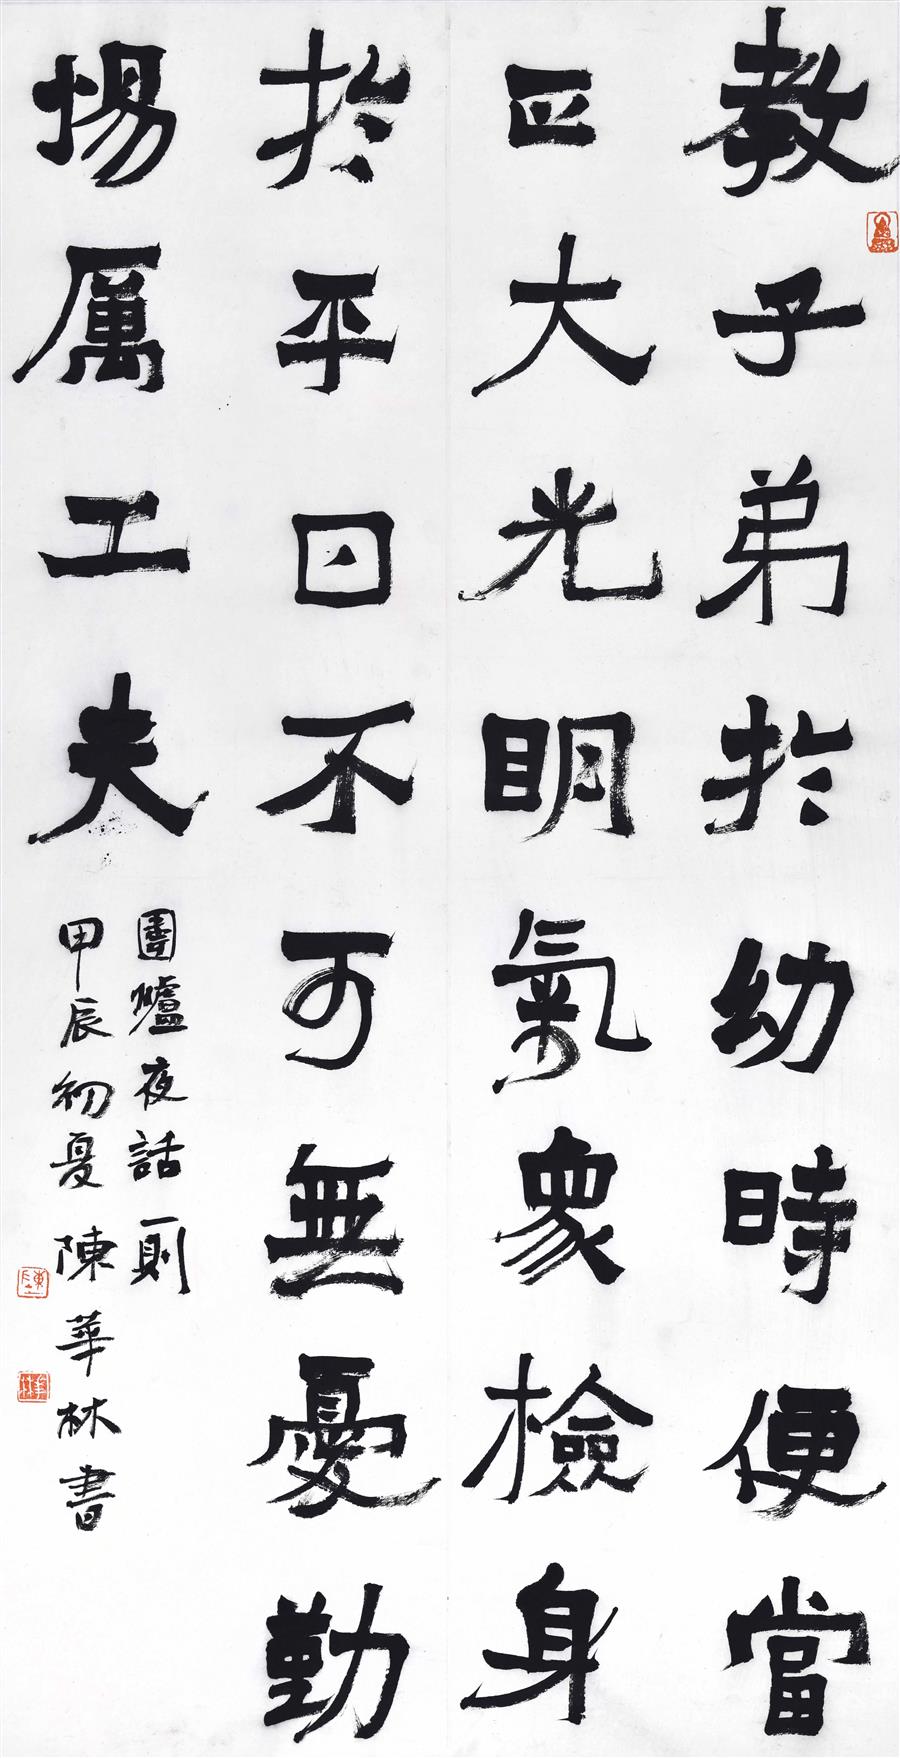 教子弟於幼時便當
正大光明氣象檢身
於平日不可無憂勤
惕厲工夫
圍爐夜話一則
甲辰初夏陳華林書